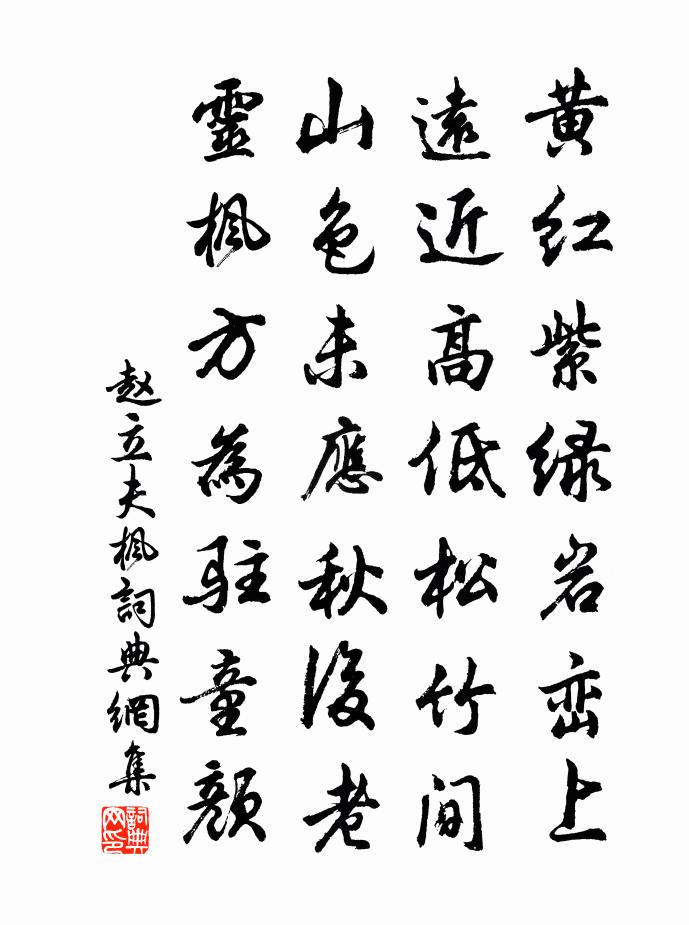 黄红紫绿岩峦上
遠近高低松竹间
山色未應秋後老
靈楓方為駐童顔
赵立夫楓詞典網集
詞典网印